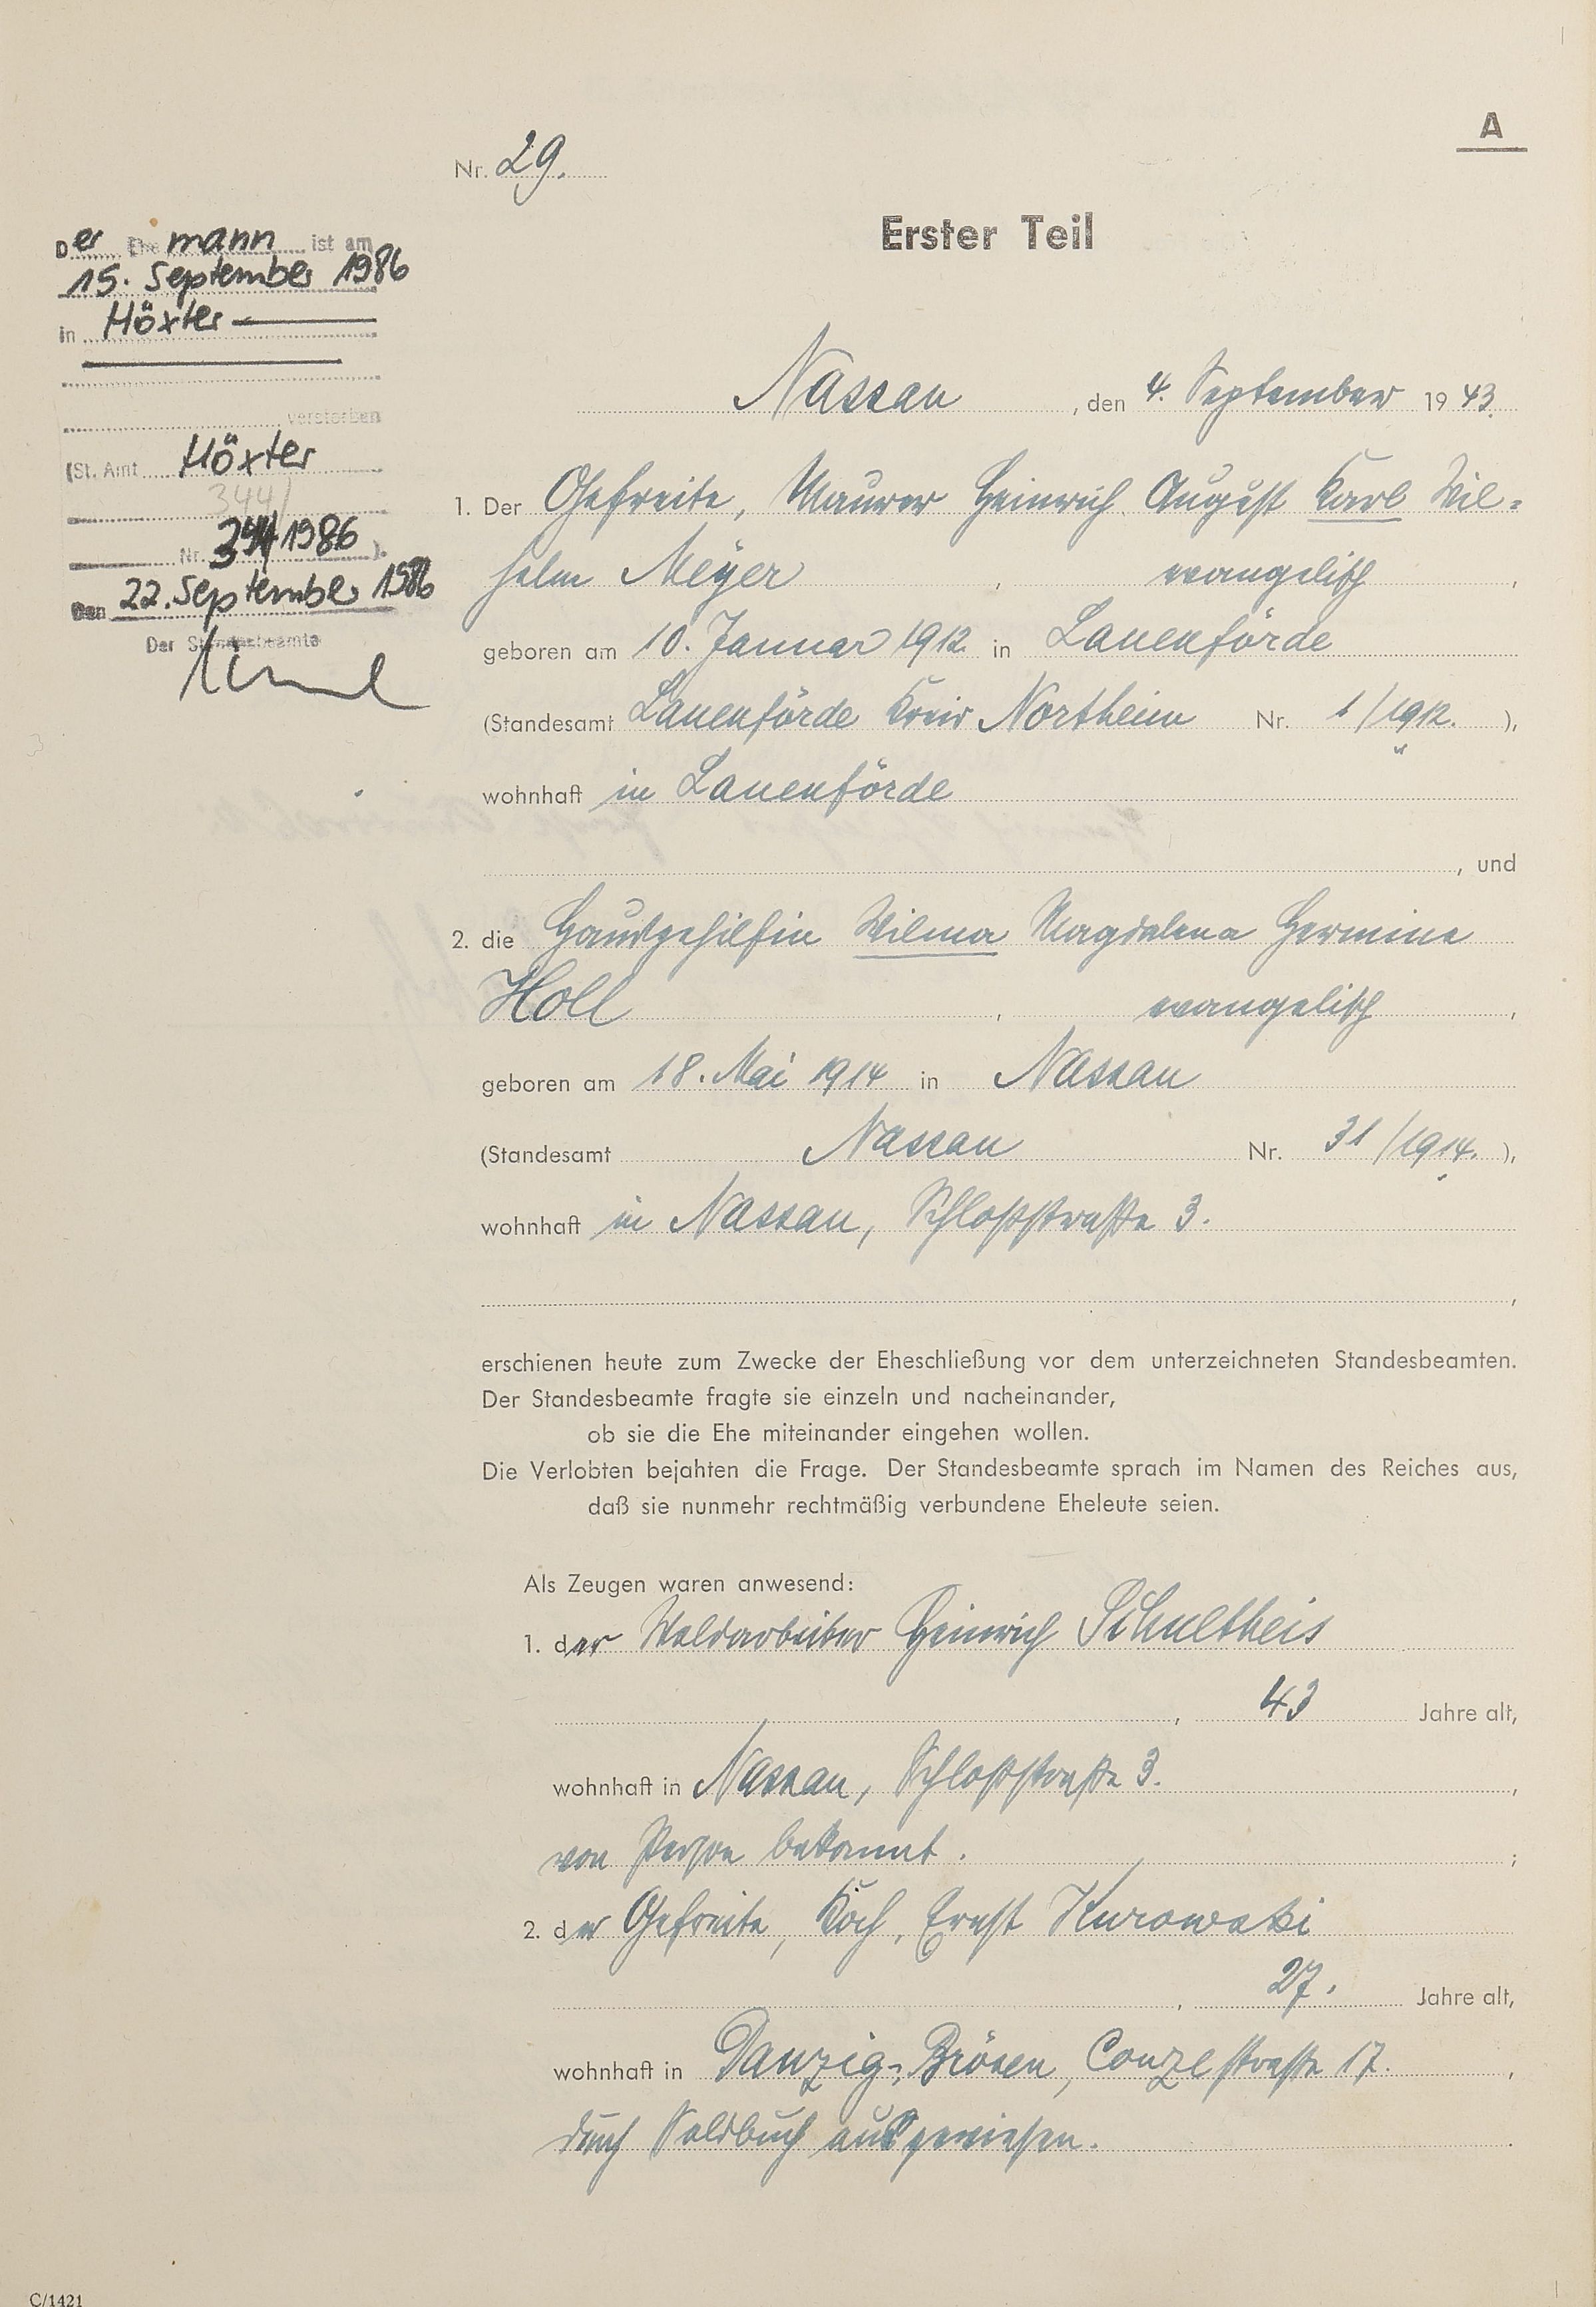 A
Nr. 29.
Erster Teil
Der Ehemann ist am
15. September 1986
in Höxter
verstorben
(St. Amt Höxter
344/
Nr. 344/1986 ).
Den 22. September 1986
Der Standesbeamte
Nassau, den 4. September 1943.
1. Der Gefreite, Maurer Heinrich August Karl Wil-
helm Meyer, evangelisch,
geboren am 10. Januar 1912 in Lauenförde
(Standesamt Lauenförde Kreis Northeim Nr. 1/1912. ),
wohnhaft in Lauenförde
, und
2. die Hausgehilfin Wilma Magdalena Hermine
Holl, evangelisch,
geboren am 18. Mai 1914 in Nassau
(Standesamt Nassau Nr. 31/1914. ),
wohnhaft in Nassau, Schloßstraße 3.
,
erschienen heute zum Zwecke der Eheschließung vor dem unterzeichneten Standesbeamten.
Der Standesbeamte fragte sie einzeln und nacheinander,
ob sie die Ehe miteinander eingehen wollen.
Die Verlobten bejahten die Frage. Der Standesbeamte sprach im Namen des Reiches aus,
daß sie nunmehr rechtmäßig verbundene Eheleute seien.
Als Zeugen waren anwesend:
1. der Waldarbeiter Heinrich Schultheis
, 43 Jahre alt,
wohnhaft in Nassau, Schloßstraße 3.,
von Person bekannt. ;
2. der Gefreite, Koch, Ernst Kurowski
, 27. Jahre alt,
wohnhaft in Danzig-Brösen, Conzestraße 17.,
durch Soldbuch ausgewiesen. .
C/1421